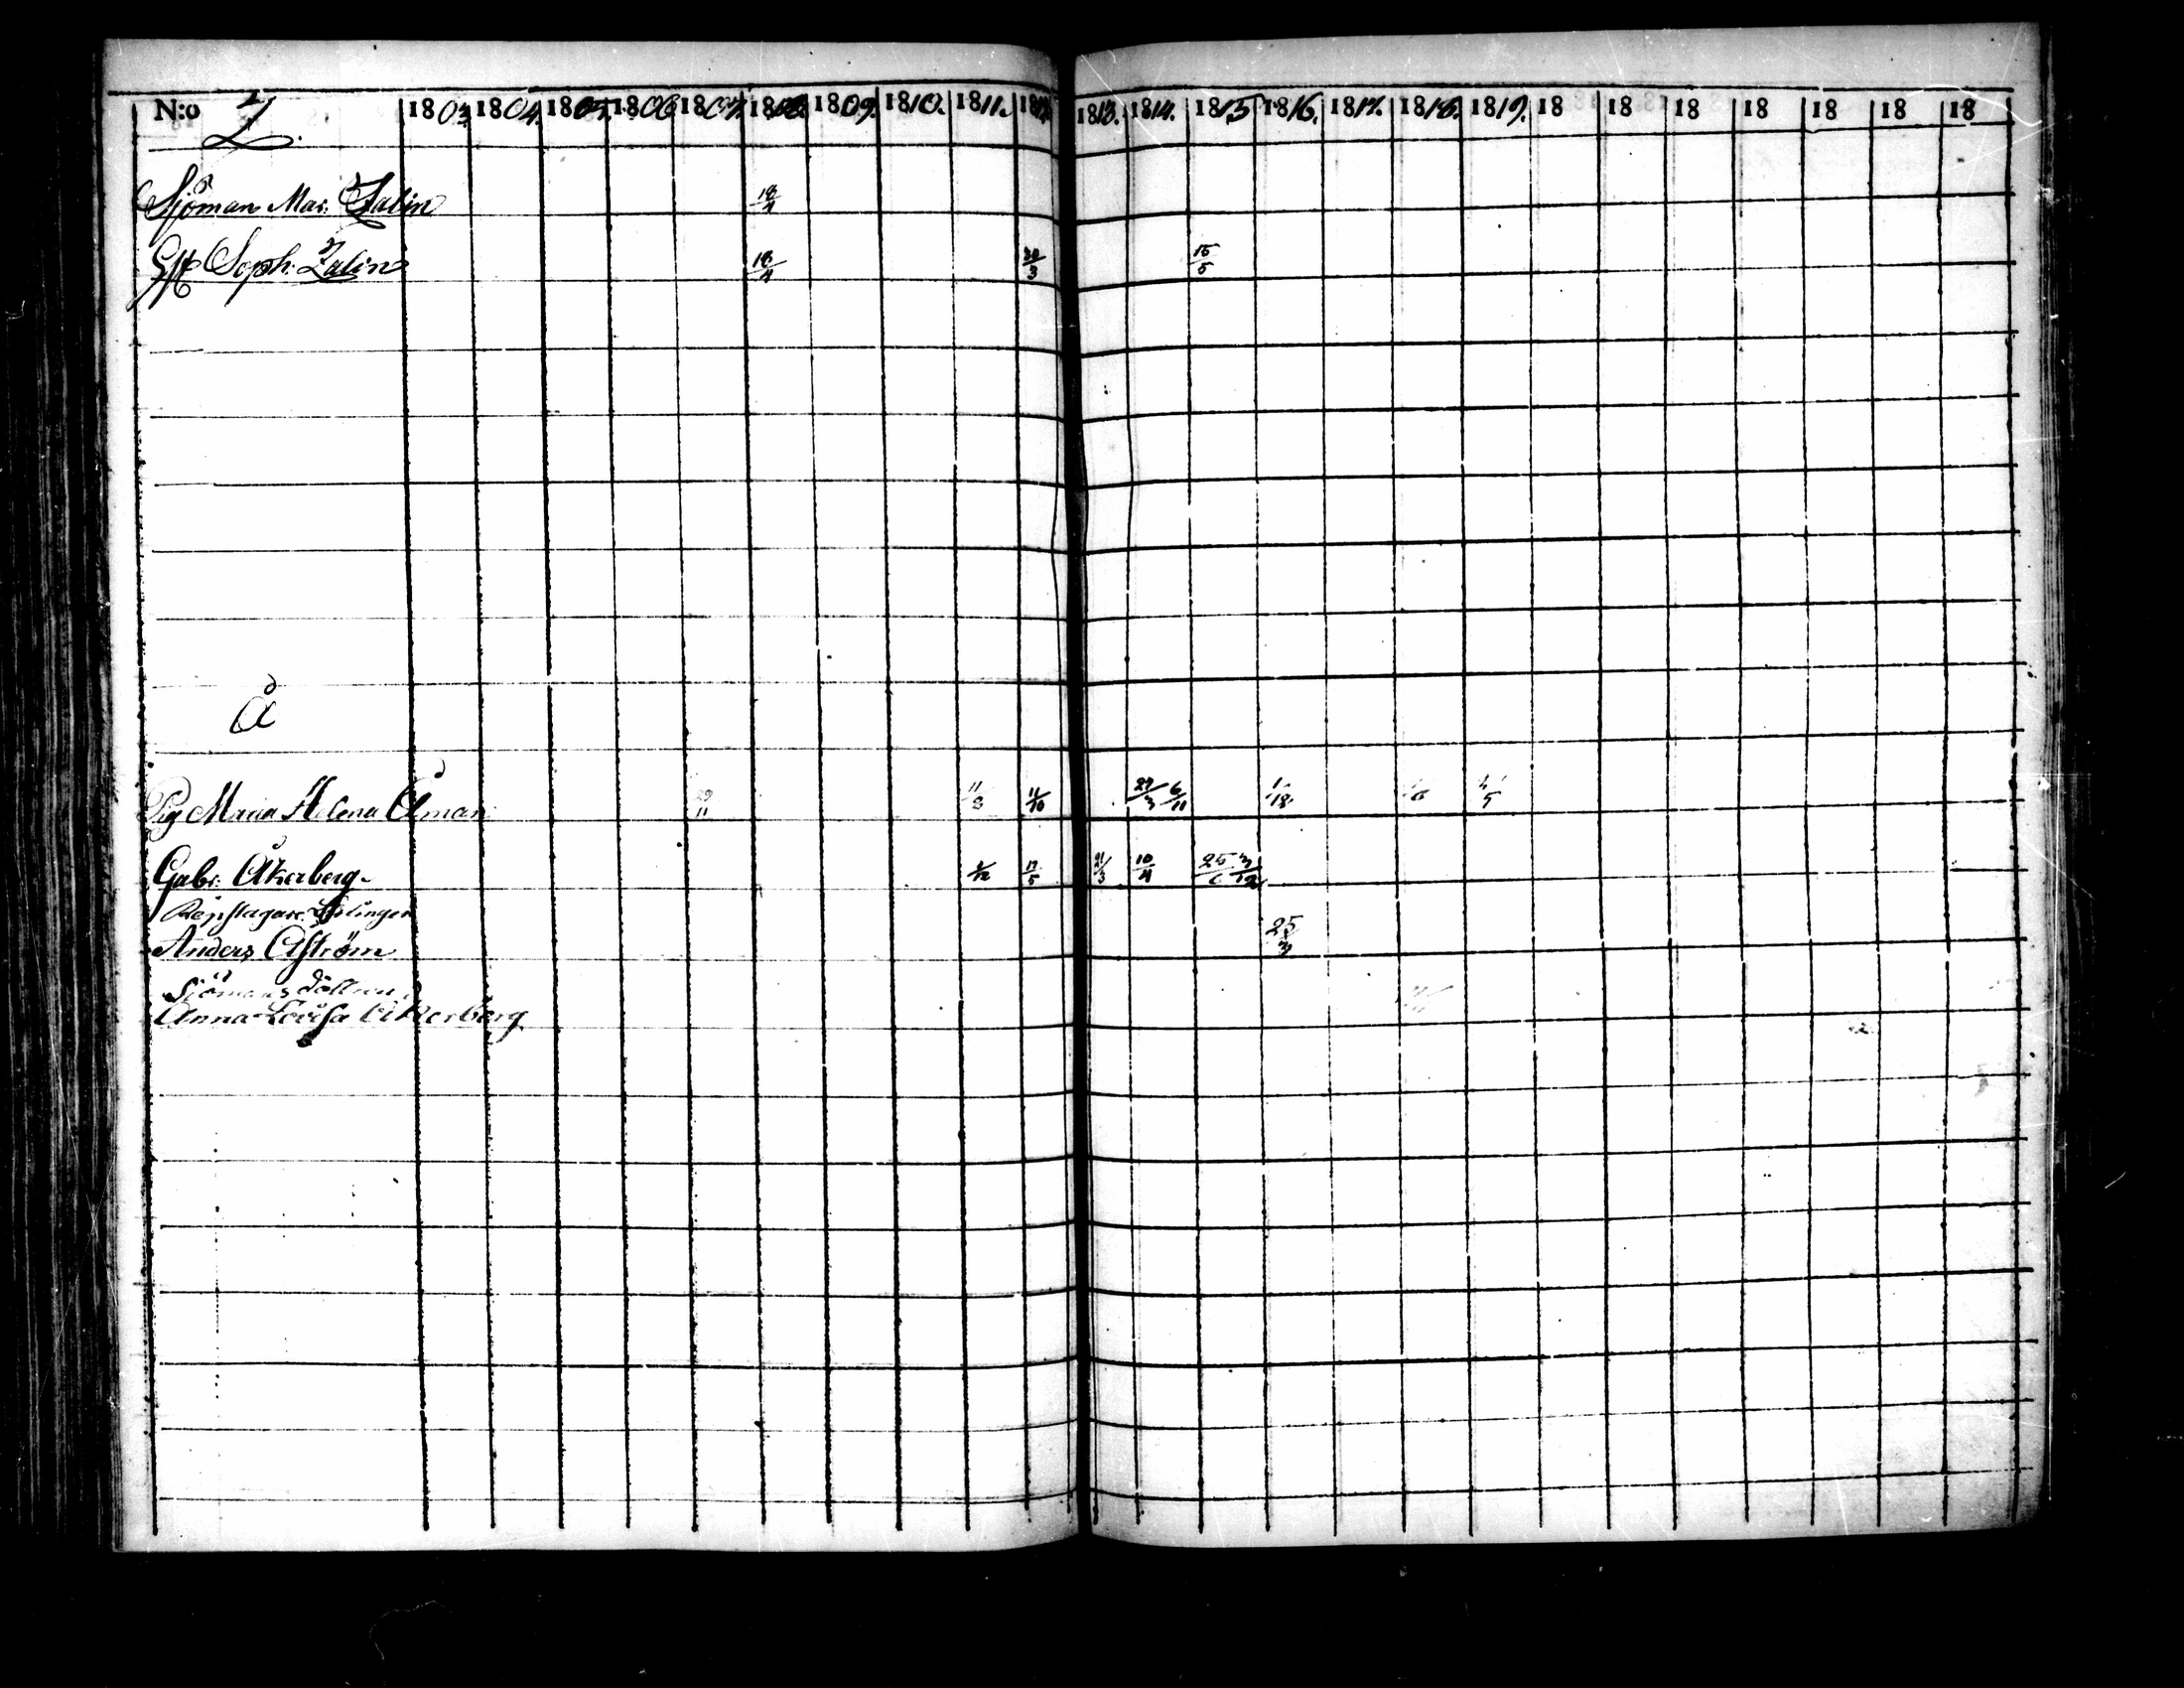 N:o Z. 1803. 1804. 1805. 1806 1807. 1808. 1809. 1810. 1811. 1812. 1813. 1814. 1815 1816. 1817. 1818. 1819. 18 18 18 18 18 18 18
Sjöman Mar. Zalin 18/4
Soph. Zalin 18/4 30/3 15/5
Å
Pig Maria Helena Åman 29/11 11/10 27/3 6/11
Gabr. Åkerberg 10/4 25 3/12
Repslagare
Anders Åström 25/3
Sjömans
Anna Lovisa Åkerberg